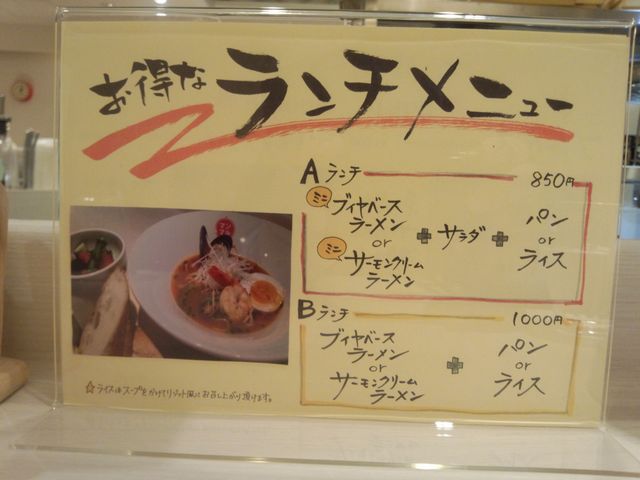 お得な ランチメニュー
Aランチ 850円
ミニ ブイヤベース
ラーメン
or
ミニ サーモンクリーム
ラーメン
+ サラダ +
パン
or
ライス
Bランチ 1000円
ブイヤベース
ラーメン
or
サーモンクリーム
ラーメン
+
パン
or
ライス
☆ライスはスープをかけてリゾット風にお召し上がり頂けます。